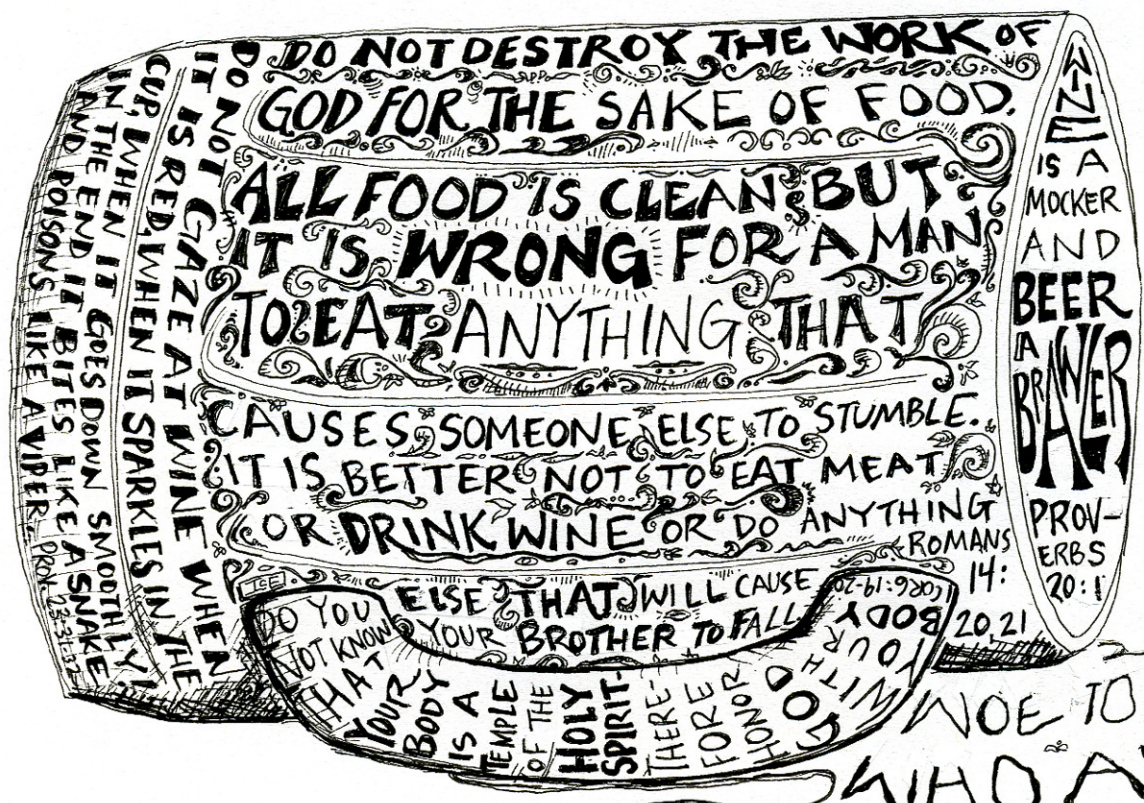 DO NOT DESTROY THE WORK OF
GOD FOR THE SAKE OF FOOD.
ALL FOOD IS CLEAN BUT
IT IS WRONG FOR A MAN
TO EAT ANYTHING THAT
CAUSES SOMEONE ELSE TO STUMBLE.
IT IS BETTER NOT TO EAT MEAT
OR DRINK WINE OR DO ANYTHING
ELSE THAT WILL CAUSE
YOUR BROTHER TO FALL
ROMANS
14:
20,21
WINE
IS A
MOCKER
AND
BEER
A
BRAWLER
PROV-
ERBS
20:1
DO NOT GAZE AT WINE WHEN
IT IS RED, WHEN IT SPARKLES IN THE
CUP, WHEN IT GOES DOWN SMOOTHLY!
IN THE END IT BITES LIKE A SNAKE
AND POISONS LIKE A VIPER. PROV. 23:31-32
DO YOU
NOT KNOW
THAT
YOUR
BODY
IS A
TEMPLE
OF THE
HOLY
SPIRIT-
THERE-
FORE
HONOR
GOD
WITH
YOUR
BODY
1COR 6:19-20
WOE TO
WHO A